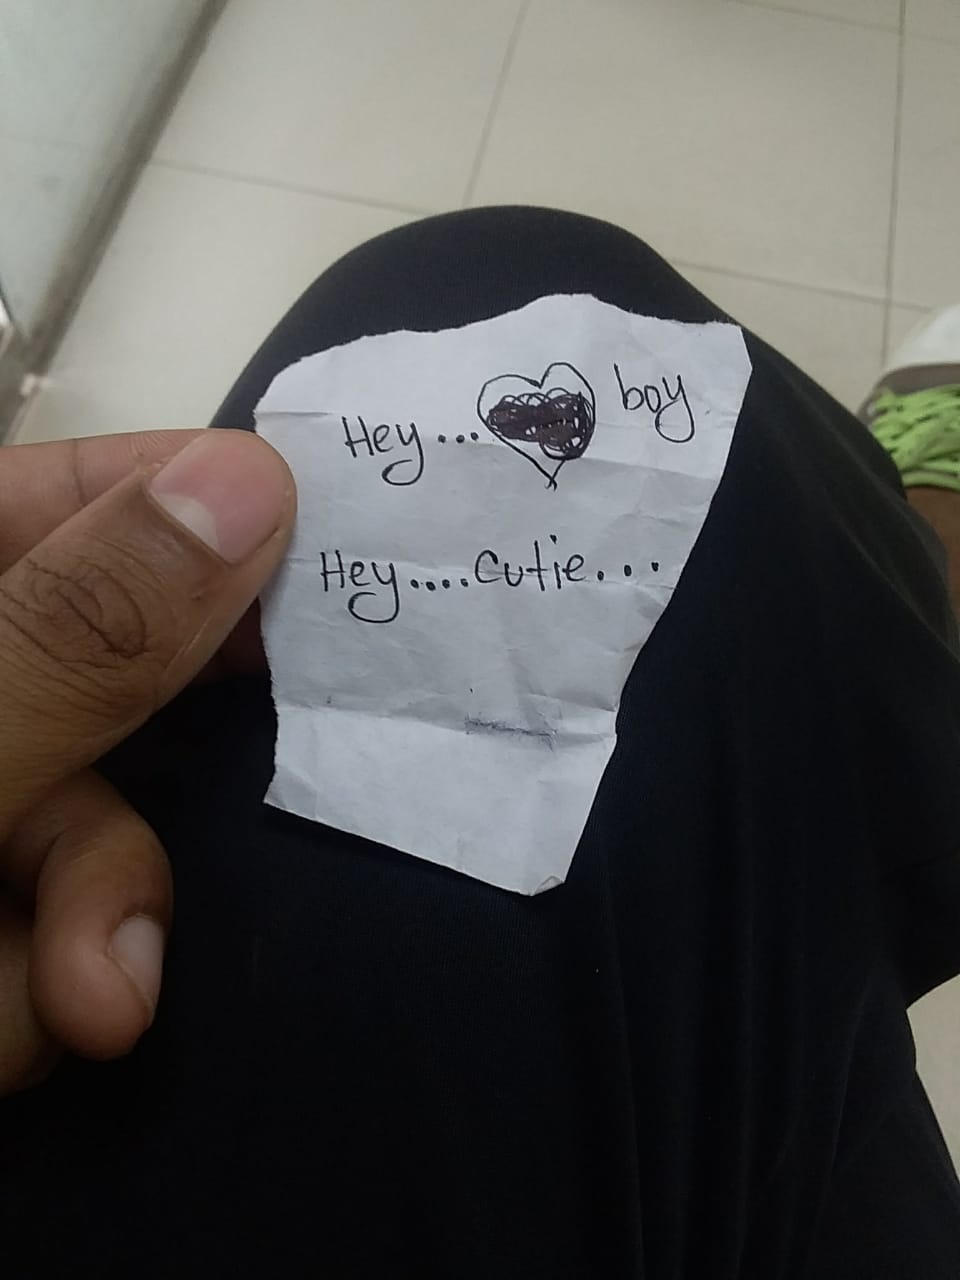 Hey... boy
Hey....cutie...